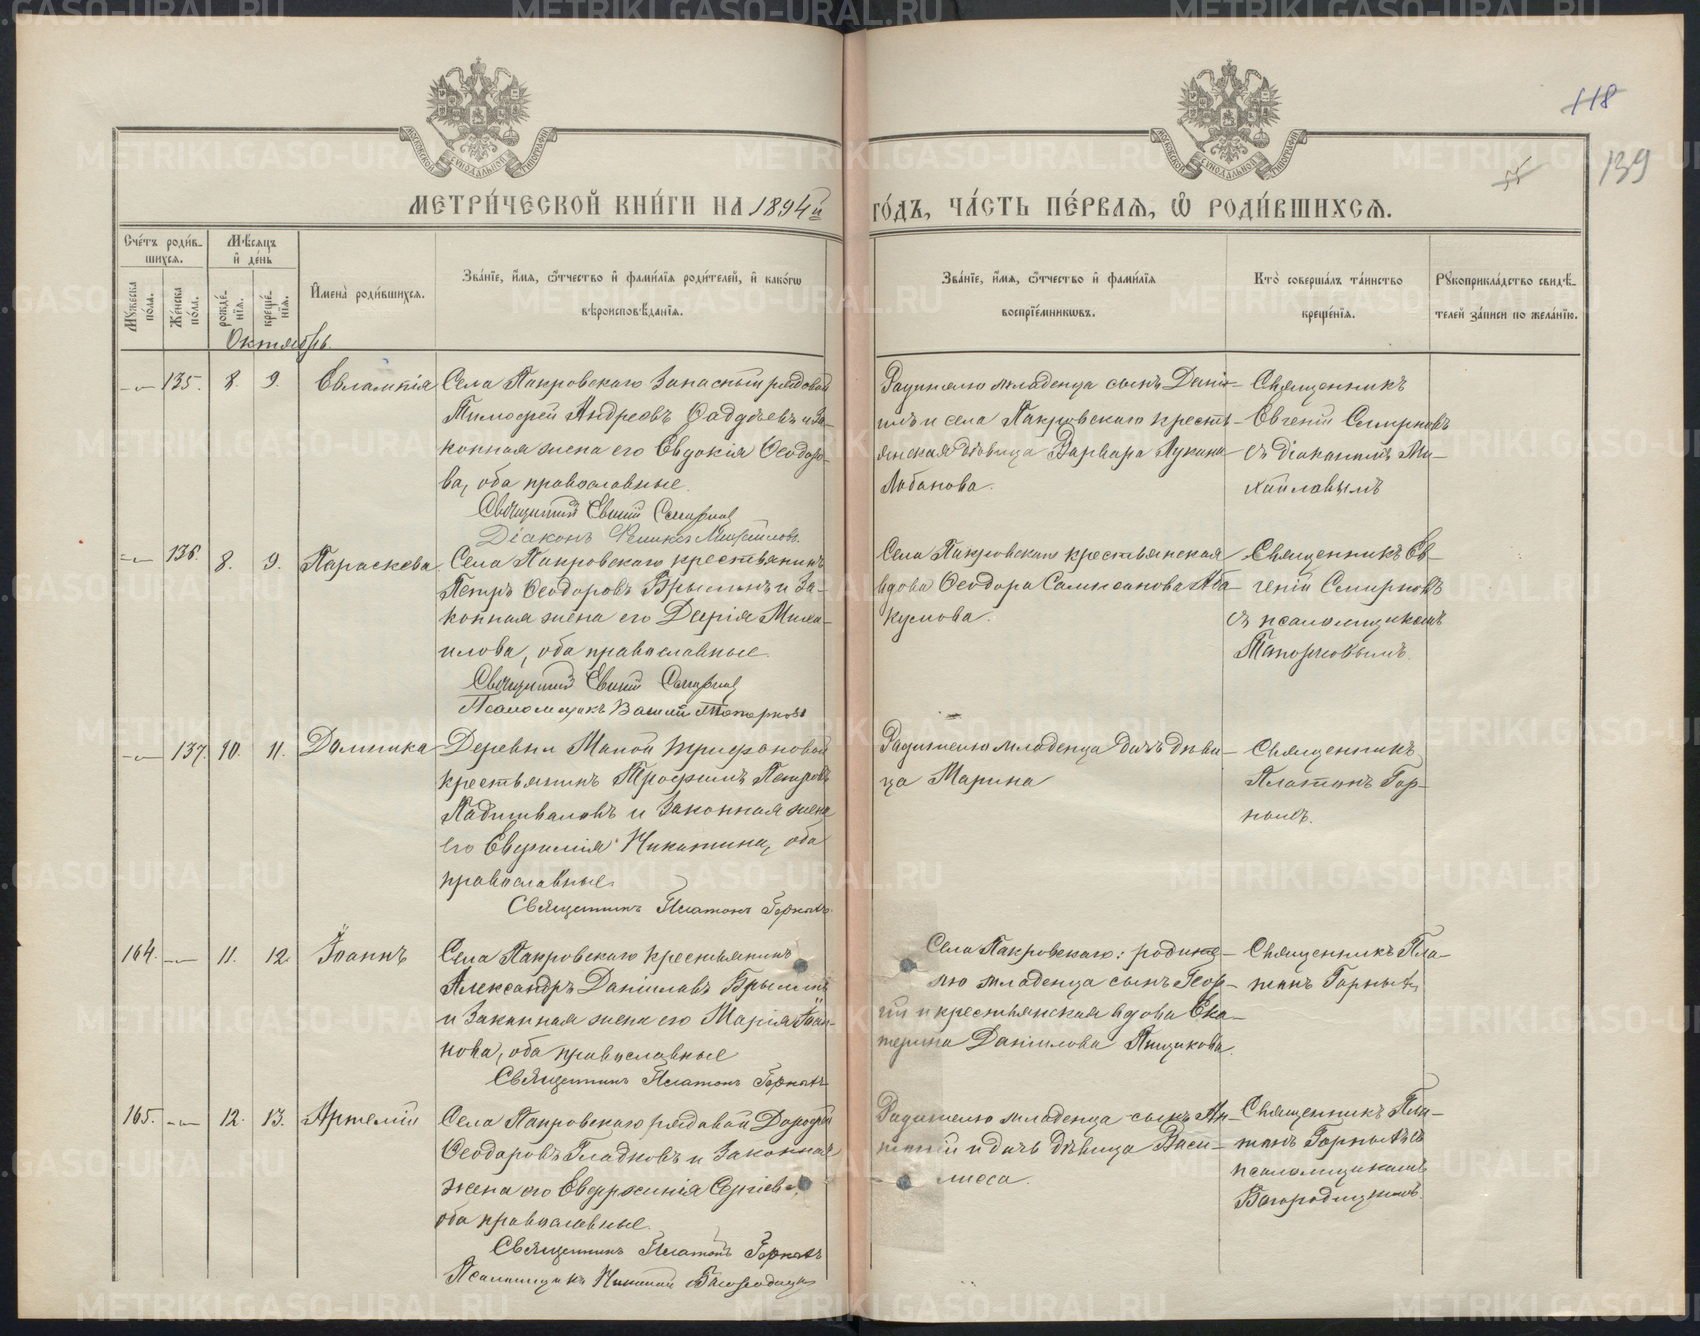 МЕТРИ́ЧЕСКОЙ КНИ́ГИ НА 1894й ГО́ДЪ, ЧА́СТЬ ПЕ́РВАЯ, Ѡ҆ РОДИ́ВШИХСЯ.
118
139
Сче́тъ роди́в-
шихся.
Мꙋ́жеска по́ла.
Же́нска по́ла.
Мѣ́сяцъ и҆ де́нь
рожде́нїя.
креще́нїя.
И҆мена̀ роди́вшихся.
Зва́нїе, и҆́мя, ѻ҆́тчество и҆ фами́лїя роди́телей, и҆ како́гѡ
вѣроисповѣ́данїя.
Зва́нїе, и҆́мя, ѻ҆́тчество и҆ фами́лїя
воспрїе́мникѡвъ.
Кто̀ соверша́лъ та́инство
креще́нїя.
Рꙋкоприкла́дство свидѣ́-
телей за́писи по жела́нїю.
Октябрь.
135. 8. 9. Евлампія
Села Покровскаго запасный рядовой
Тимофей Андреевъ Фаддѣевъ и за-
конная жена его Евдокія Ѳеодоро-
ва, оба православные.
Священникъ Евгеній Смирновъ
Діаконъ Михайловъ.
Родителю младенца сынъ Дани-
илъ и села Покровскаго кресть-
янская дѣвица Варвара Лукина
Лобанова.
Священникъ
Евгеній Смирновъ
съ діакономъ Ми-
хайловымъ
136. 8. 9. Параскева
Села Покровскаго крестьянинъ
Петръ Ѳеодоровъ Брылинъ и за-
конная жена его Дарія Миха-
илова, оба православные.
Священникъ Евгеній Смирновъ
Псаломщикъ Василій Топорковъ
Села Покровскаго крестьянская
вдова Ѳеодора Самсонова Аба-
кумова.
Священникъ Ев-
геній Смирновъ
съ псаломщикомъ
Топорковымъ.
137. 10. 11. Домника
Деревни Малой Трифоновой
крестьянинъ Трофимъ Петровъ
Подшиваловъ и законная жена
его Евфимія Никитина, оба
православные.
Священникъ Платонъ Горныхъ.
Родителю младенца дочь дѣви-
ца Марина
Священникъ
Платонъ Гор-
ныхъ.
164. 11. 12. Іоаннъ
Села Покровскаго крестьянинъ
Александръ Даніиловъ Брылинъ
и законная жена его Марія Іоан-
нова, оба православные
Священникъ Платонъ Горныхъ
Села Покровскаго: родите-
лю младенца сынъ Геор-
гій и крестьянская вдова Ека-
терина Даніилова Пищикова.
Священникъ Пла-
тонъ Горныхъ
165. 12. 13. Артемій
Села Покровскаго рядовой Дорофей
Ѳеодоровъ Гладковъ и законная
жена его Евфросинія Сергіева,
оба православные.
Священникъ Платонъ Горныхъ
Псаломщикъ Николай Богородицкій
Родителю младенца сынъ Ан-
тоній и дочь дѣвица Васи-
лисса.
Священникъ Пла-
тонъ Горныхъ съ
псаломщикомъ
Богородицкимъ.